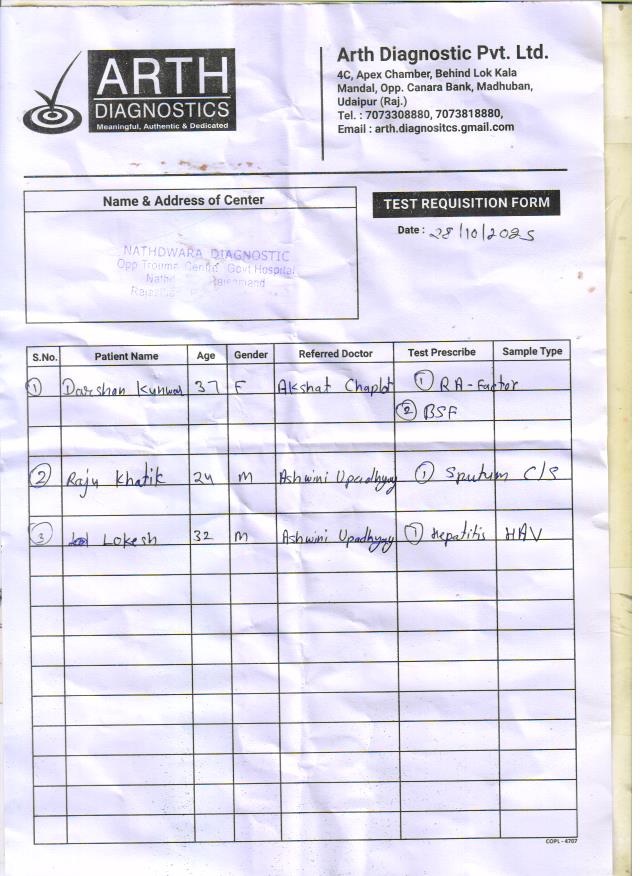 ARTH
DIAGNOSTICS
Meaningful, Authentic & Dedicated
Arth Diagnostic Pvt. Ltd.
4C, Apex Chamber, Behind Lok Kala
Mandal, Opp. Canara Bank, Madhuban,
Udaipur (Raj.)
Tel. : 7073308880, 7073818880,
Email : arth.diagnositcs.gmail.com
Name & Address of Center
NATHDWARA DIAGNOSTIC
Opp Trouma Centre Govt Hospital
TEST REQUISITION FORM
Date : 28/10/2025
S.No. Patient Name Age Gender Referred Doctor Test Prescribe Sample Type
1 Darshan Kunwar 37 F Akshat Chaplot 1 RA-Factor
2 BSF
2 Raju Khatik 24 M Ashwini Upadhyay 1 Sputum C/S
3 Lokesh 32 M Ashwini Upadhyay 1 Hepatitis HAV
COPL - 4707